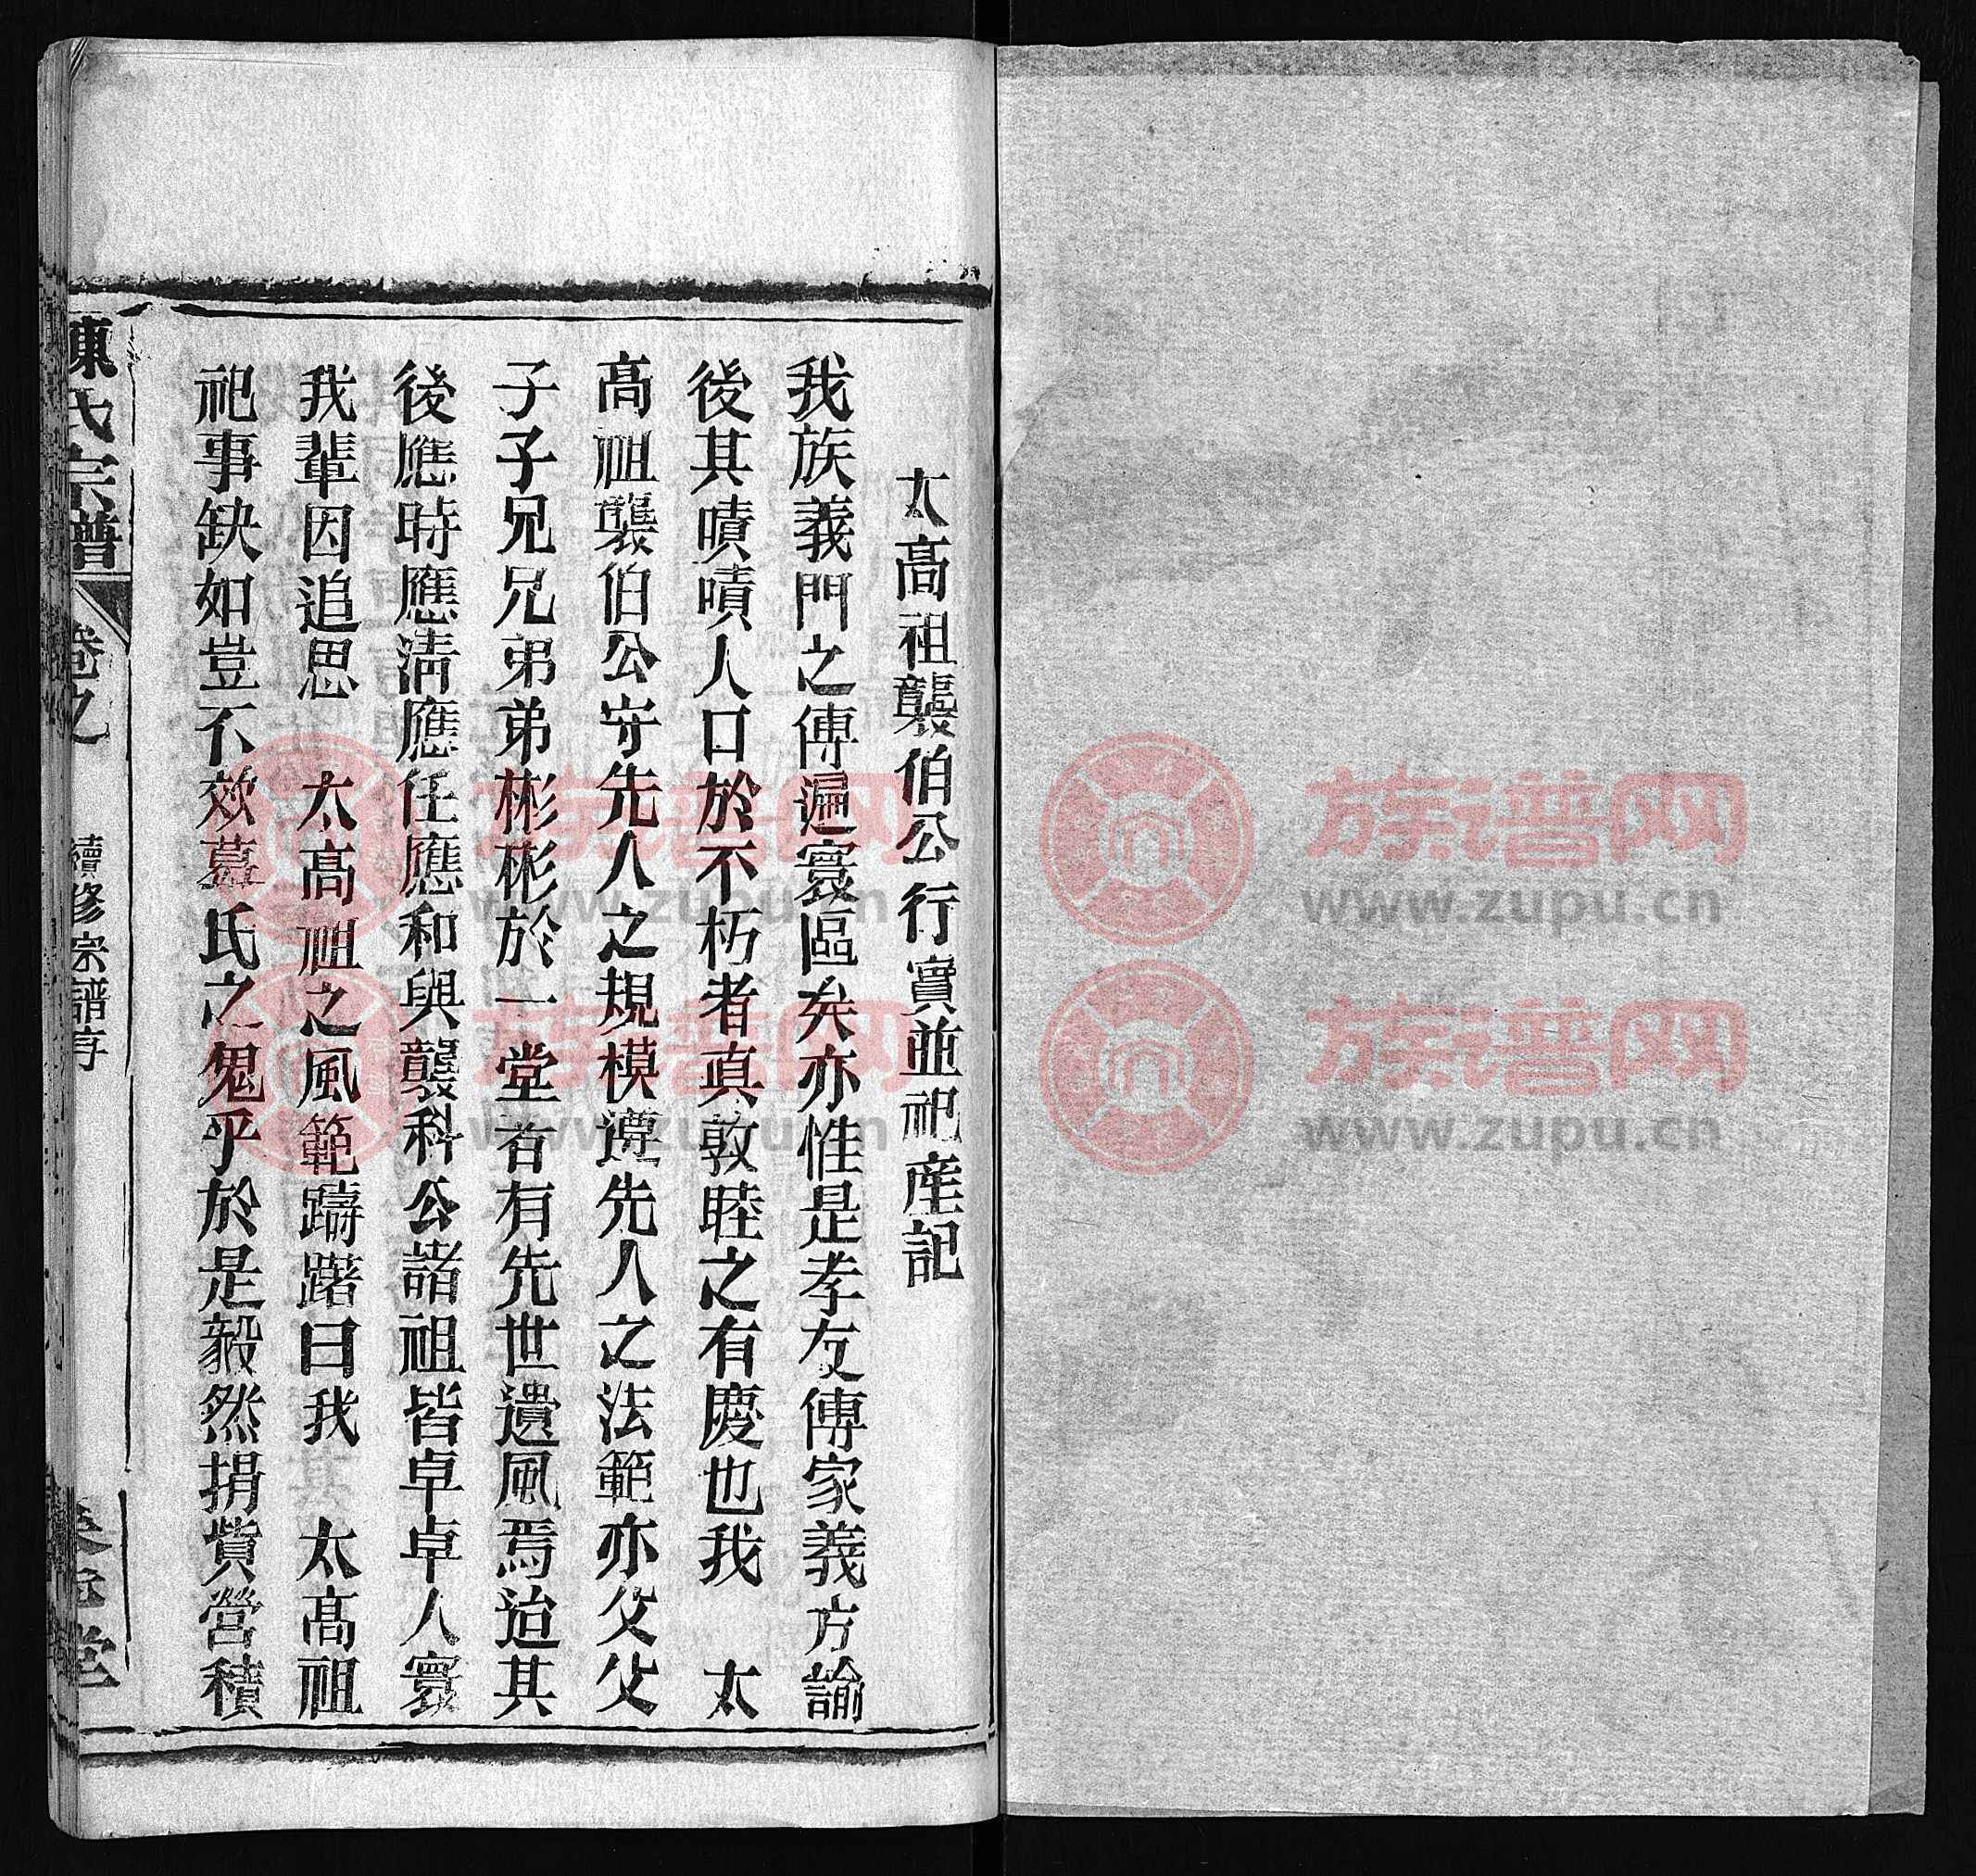 太高祖襲伯公行實並祀産記
我族義門之傳遍寰區矣亦惟是孝友傳家義方諭
後其嘖嘖人口於不朽者真敦睦之有慶也我　太
高祖襲伯公守先人之規模遵先人之法範亦父父
子子兄兄弟弟彬彬於一堂者有先世遺風焉迨其
後應時應清應任應和與襲科公諸祖皆卓卓人寰
我輩因追思　太高祖之風範躊躇曰我　太高祖
祀事缺如豈不效墓氏之鬼乎於是毅然捐貲營積
陳氏宗譜
卷之
續修宗譜序
堂
族谱网
www.zupu.cn
族谱网
www.zupu.cn
族谱网
www.zupu.cn
族谱网
www.zupu.cn